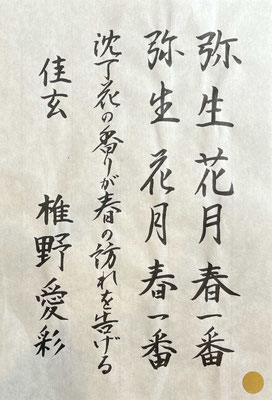 弥生花月春一番
弥生花月春一番
沈丁花の香りが春の訪れを告げる
佳玄 椎野愛彩